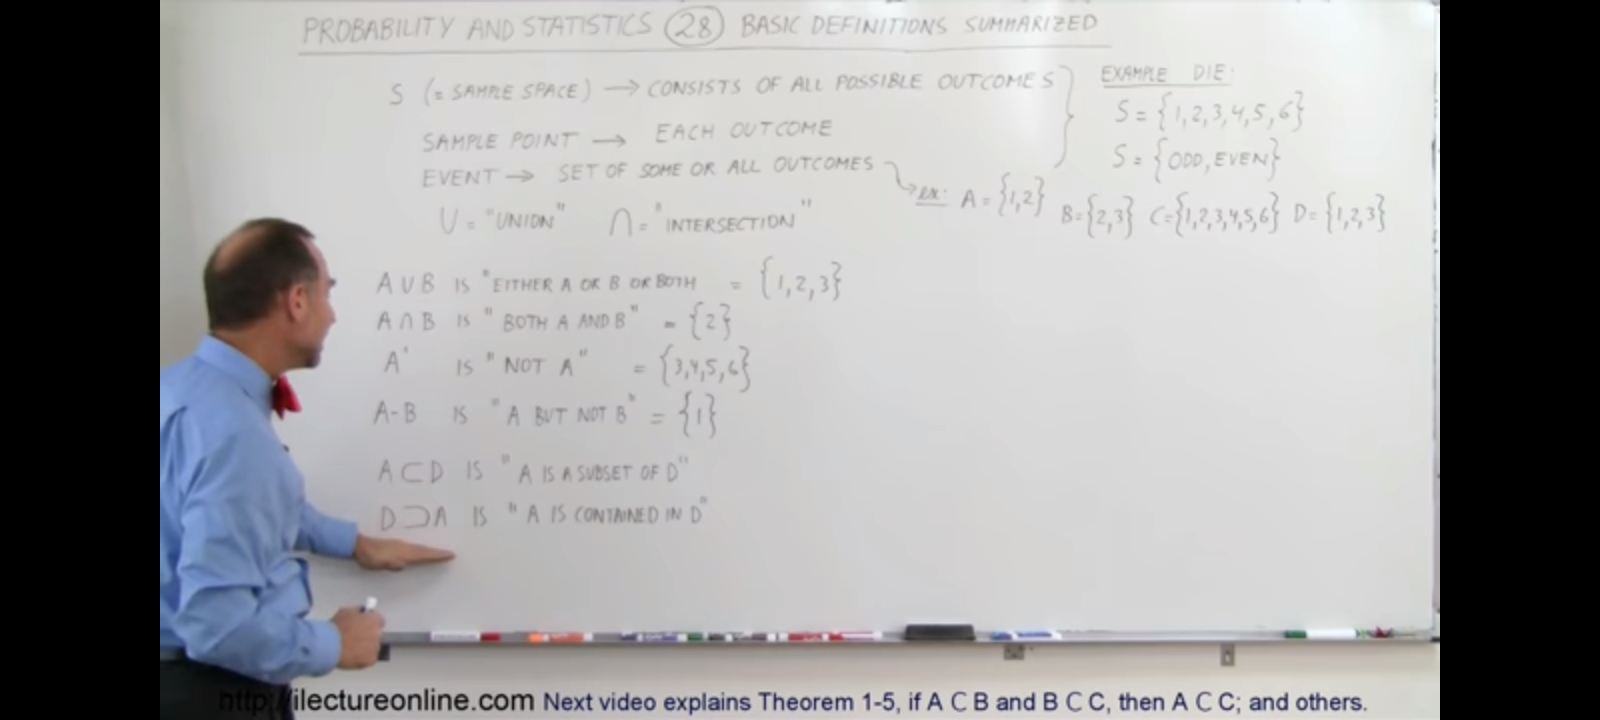 PROBABILITY AND STATISTICS 28 BASIC DEFINITIONS SUMMARIZED
S (= SAMPLE SPACE) → CONSISTS OF ALL POSSIBLE OUTCOMES
EXAMPLE DIE:
S = {1,2,3,4,5,6}
SAMPLE POINT → EACH OUTCOME
S = {ODD, EVEN}
EVENT → SET OF SOME OR ALL OUTCOMES
ex: A = {1,2} B = {2,3} C = {1,2,3,4,5,6} D = {1,2,3}
U = "UNION" ∩ = "INTERSECTION"
A U B IS "EITHER A OR B OR BOTH = {1,2,3}
A ∩ B IS "BOTH A AND B" = {2}
A' IS "NOT A" = {3,4,5,6}
A-B IS "A BUT NOT B" = {1}
A ⊂ D IS "A IS A SUBSET OF D"
D ⊃ A IS "A IS CONTAINED IN D"
http://ilectureonline.com Next video explains Theorem 1-5, if A ⊂ B and B ⊂ C, then A ⊂ C; and others.